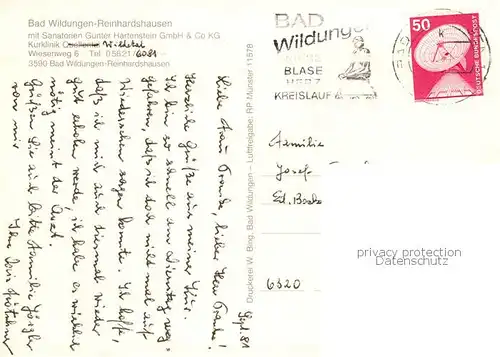 Bad Wildungen-Reinhardshausen
mit Sanatorien Günter Hartenstein GmbH & Co KG
Kurklinik Quellental Wildetal
Wiesenweg 6 Tel 05621/6081
3590 Bad Wildungen-Reinhardshausen
Druckerei W. Bing, Bad Wildungen – Luftfreigabe, RP Münster 11578
BAD
Wildungen
BLASE
HERZ
KREISLAUF
50
DEUTSCHE BUNDESPOST
Sept. 81
Liebe Frau Franke, lieber Herr Franke!
Herzliche Grüße aus meiner Kur.
Ich bin so schnell am Dienstag weg-
gefahren, daß ich doch nicht mal auf
Wiedersehen sagen konnte. Ich hoffe,
daß ich mich auch diesmal wieder
gut erholen werde, ich habe es wirklich
nötig meint der Arzt.
Grüßen Sie auch bitte Familie
von mir
Ihre
Familie
Josef
Ed.
6320
privacy protection
Datenschutz